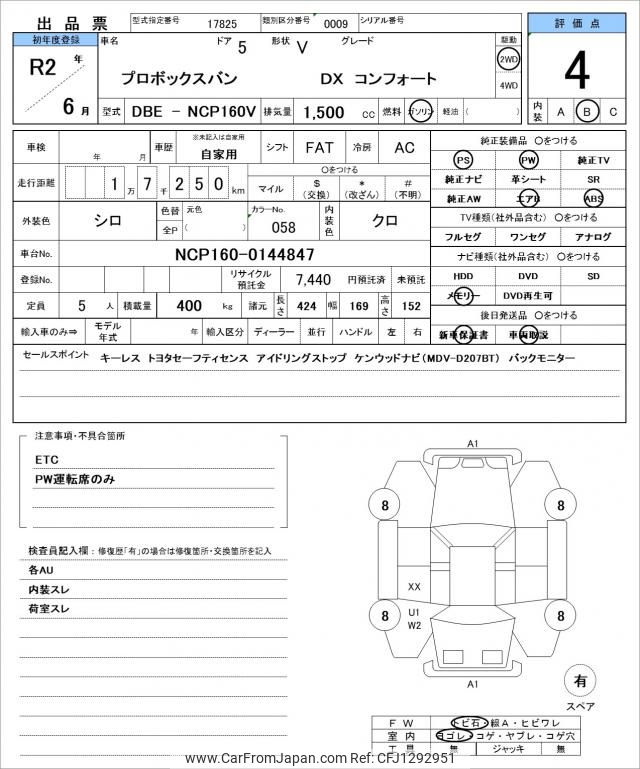 出品票 型式指定番号 17825 類別区分番号 0009 シリアル番号
評価点
初年度登録 車名 ドア 5 形状 V グレード 駆動
R2 年 プロボックスバン DX コンフォート 2WD 4
4WD
6 月 型式 DBE － NCP160V 排気量 1,500 cc 燃料 ガソリン 軽油 ( ) 内装 A B C
車検 年 月 車歴 ※未記入は自家用 自家用 シフト FAT 冷房 AC 純正装備品 〇をつける
PS PW 純正TV
走行距離 1 万 7 千 2 5 0 km 〇をつける
マイル $ (交換) * (改ざん) # (不明)
純正ナビ 革シート SR
純正AW エアB ABS
外装色 シロ 色替 元色 カラーNo. 058 内装色 クロ
全P ( )
TV種類(社外品含む) 〇をつける
フルセグ ワンセグ アナログ
車台No. NCP160-0144847 ナビ種類(社外品含む) 〇をつける
登録No. リサイクル預託金 7,440 円預託済 未預託 HDD DVD SD
定員 5 人 積載量 400 kg 諸元 長さ 424 幅 169 高さ 152 メモリー DVD再生可
後日発送品 〇をつける
輸入車のみ⇒ モデル年式 年 輸入区分 ディーラー 並行 ハンドル 左 右 新車保証書 車両取説
セールスポイント キーレス トヨタセーフティセンス アイドリングストップ ケンウッドナビ(MDV-D207BT) バックモニター
注意事項・不具合箇所
ETC
PW運転席のみ
検査員記入欄：修復歴「有」の場合は修復箇所・交換箇所を記入
各AU
内装スレ
荷室スレ
A1
8 8
XX
U1
W2
8 8
A1
有
スペア
FW トビ石・線A・ヒビワレ
室内 ヨゴレ・コゲ・ヤブレ・コゲ穴
工具 無 ジャッキ 無
www.CarFromJapan.com Ref: CFJ1292951